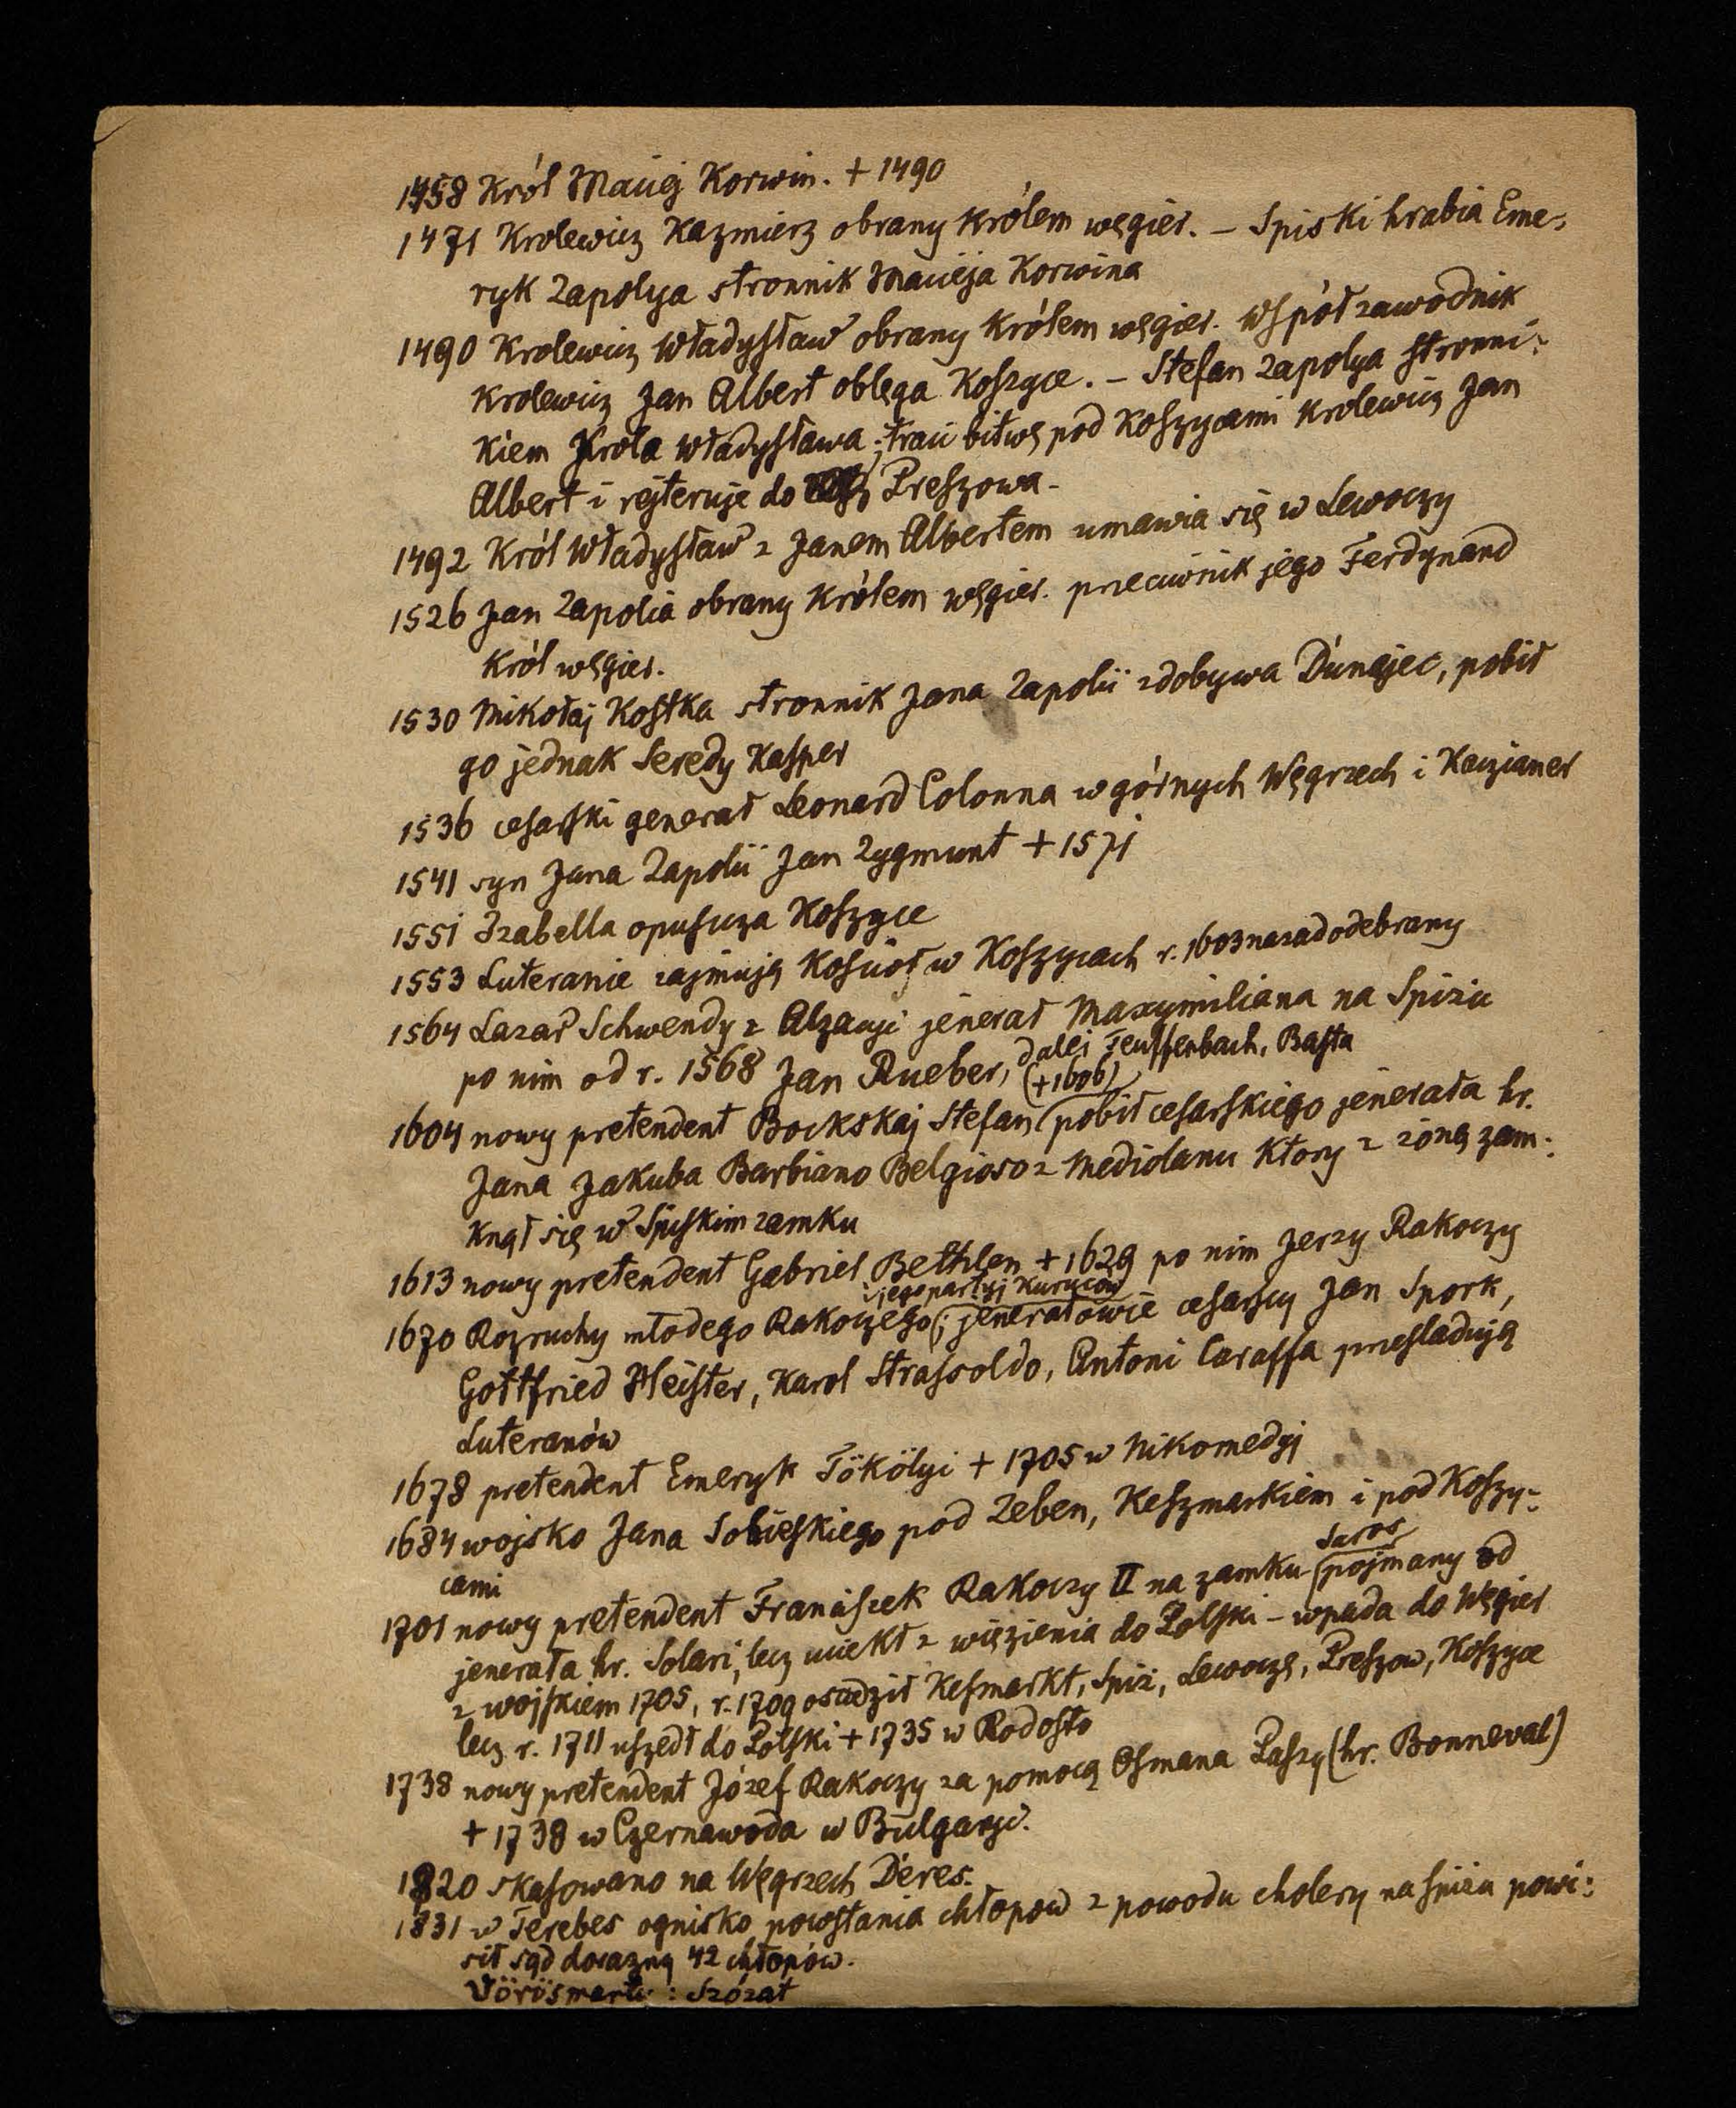 1458 Król Maciej Korwin. + 1490
1471 Krolewicz Kazmierz obrany królem węgier. – Spiski hrabia Eme-
ryk Zapolya stronnik Macieja Korwina
1490 Krolewicz Władysław obrany królem węgier. Współzawodnik
Krolewicz Jan Albert oblęga Koszyce. – Stefan Zapolya stronni-
kiem Krola Władysława; traci bitwę pod Koszycami krolewicz Jan
Albert i rejteruje do Preszowa.
1492 Król Władysław z Janem Albertem umawia się w Lewoczy
1526 Jan Zapolia obrany królem węgier. przeciwnik jego Ferdynand
Król węgier.
1530 Mikołaj Kostka stronnik Jana Zapolii zdobywa Dunajec, pobił
go jednak Seredy Kasper
1536 cesarski generał Leonard Colonna w górnych Węgrzech i Kaczianer
1541 syn Jana Zapolii Jan Zygmunt + 1571
1551 Izabella opuszcza Koszyce
1553 Luteranie zajmują Kościoł w Koszycach r. 1603 nazad odebrany
1564 Lazar Schwendy z Alzacyi jenerał Maxymiliana na Spiżu
po nim od r. 1568 Jan Rueber, dalej Teuffenbach, Basta
1604 nowy pretendent Bockskaj Stefan (+1606) pobił cesarskiego jenerała hr.
Jana Jakuba Barbiano Belgioso z Mediolanu ktory z żoną zam-
knął się w Spiskim zamku
1613 nowy pretendent Gabriel Bethlen + 1629 po nim Jerzy Rakoczy
1670 Rozruchy młodego Rakoczego i jego partyj Kuruców; jenerałowie cesarscy Jan Spork,
Gottfried Heister, Karol Strassoldo, Antoni Caraffa prześladują
Luteranów
1678 pretendent Emeryk Tökölyi + 1705 w Nikomedyj
1684 wojsko Jana Sobieskiego pod Zeben, Keszmarkiem i pod Koszy-
cami
1701 nowy pretendent Franciszek Rakoczy II na zamku Saros pojmany od
jenerała hr. Solari, lecz uciekł z więzienia do Polski – wpada do Węgier
z wojskiem 1705, r. 1709 osadził Kesmarkt, Spiż, Lewoczę, Preszow, Koszyce
lecz r. 1711 uszedł do Polski + 1735 w Rodosto
1738 nowy pretendent Józef Rakoczy za pomocą Osmana Paszy (hr. Bonneval)
+ 1738 w Czernawoda w Bulgaryi.
1820 skasowano na Węgrzech Deres.
1831 w Terebes ognisko powstania chłopow z powodu cholery na Spiżu powi-
sił sąd dorazny 42 chłopów.
Vörösmarty: Szózat